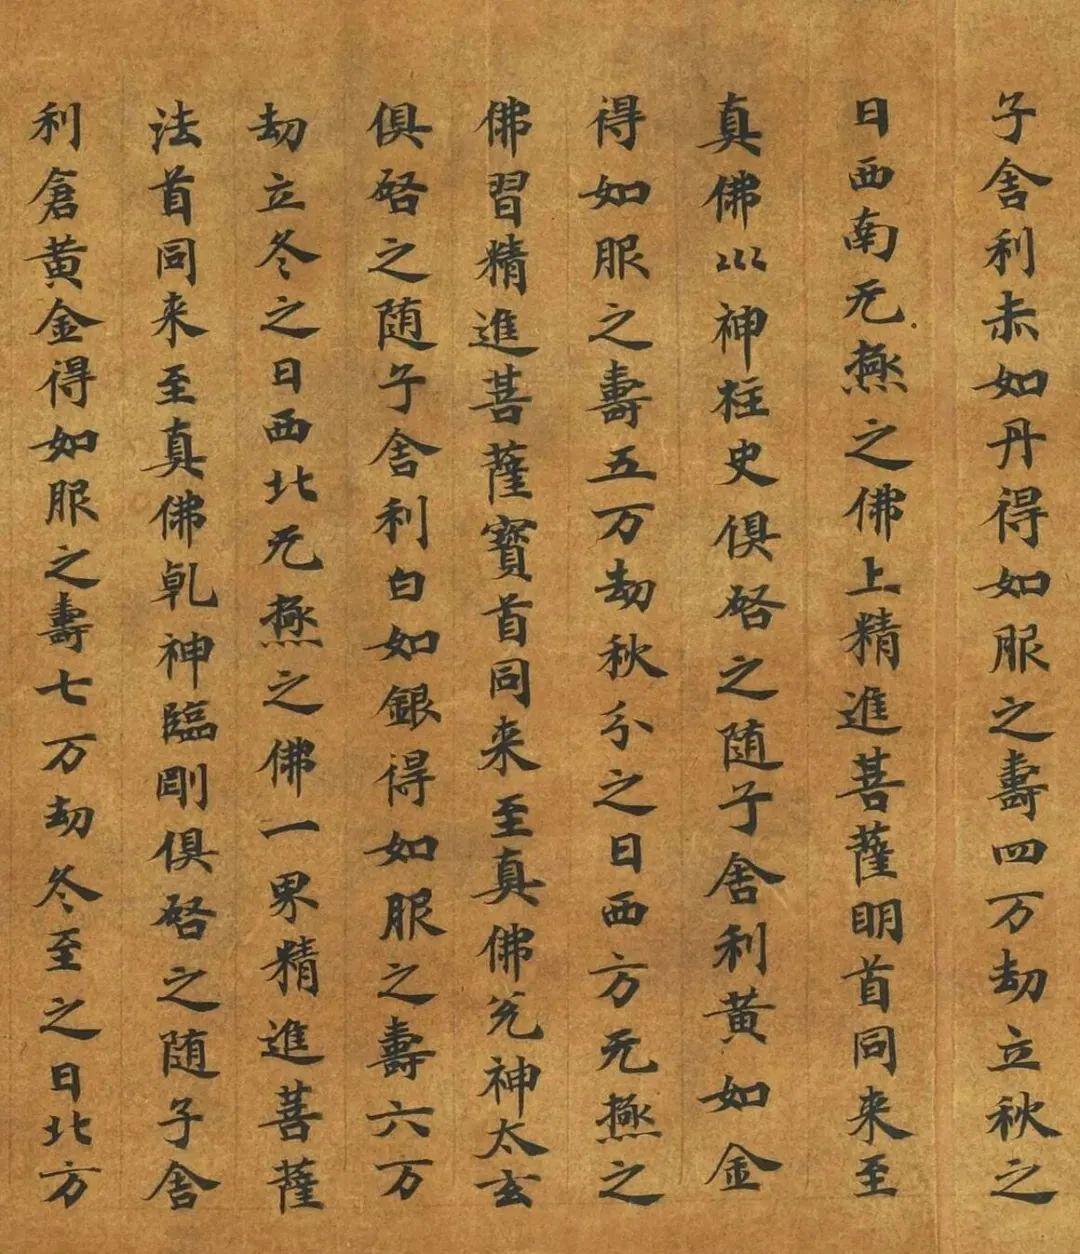 子舎利赤如丹得如服之壽四万劫立秋之
日西南无極之佛上精進菩薩明首同来至
真佛巛神柱史俱啓之随子舎利黄如金
得如服之壽五万劫秋分之日西方无極之
佛習精進菩薩寳首同来至真佛兊神太玄
俱啓之随子舎利白如銀得如服之壽六万
劫立冬之日西北无極之佛一界精進菩薩
法首同来至真佛乹神臨剛俱啓之随子舎
利倉黄金得如服之壽七万劫冬至之日北方